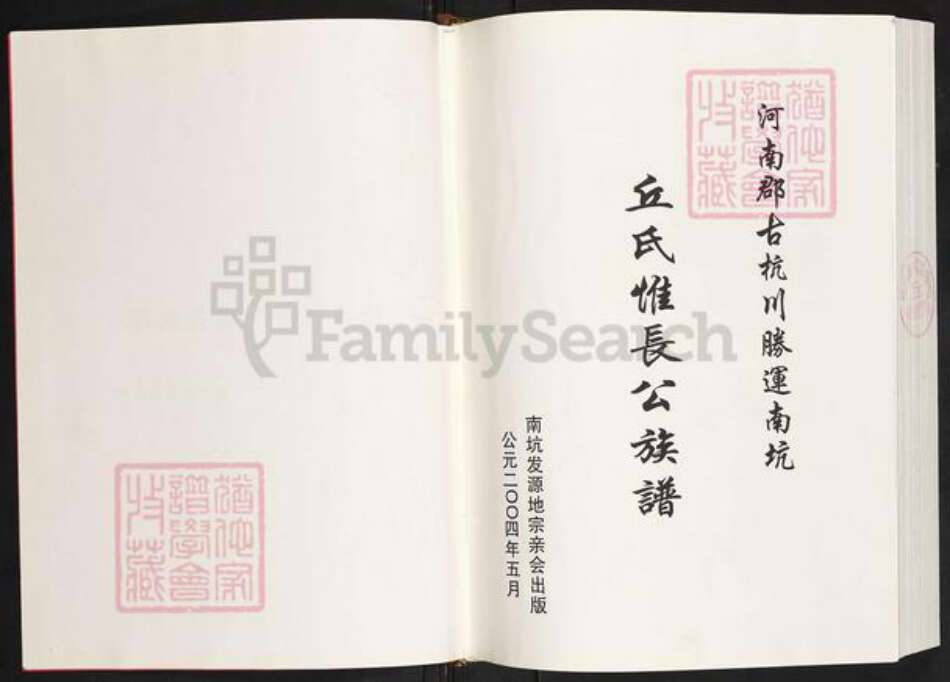 河南郡古杭川勝運南坑
丘氏惟長公族譜
南坑发源地宗亲会出版
公元二〇〇四年五月
FamilySearch
猶他家
譜學會
收藏
猶他家
譜學會
收藏